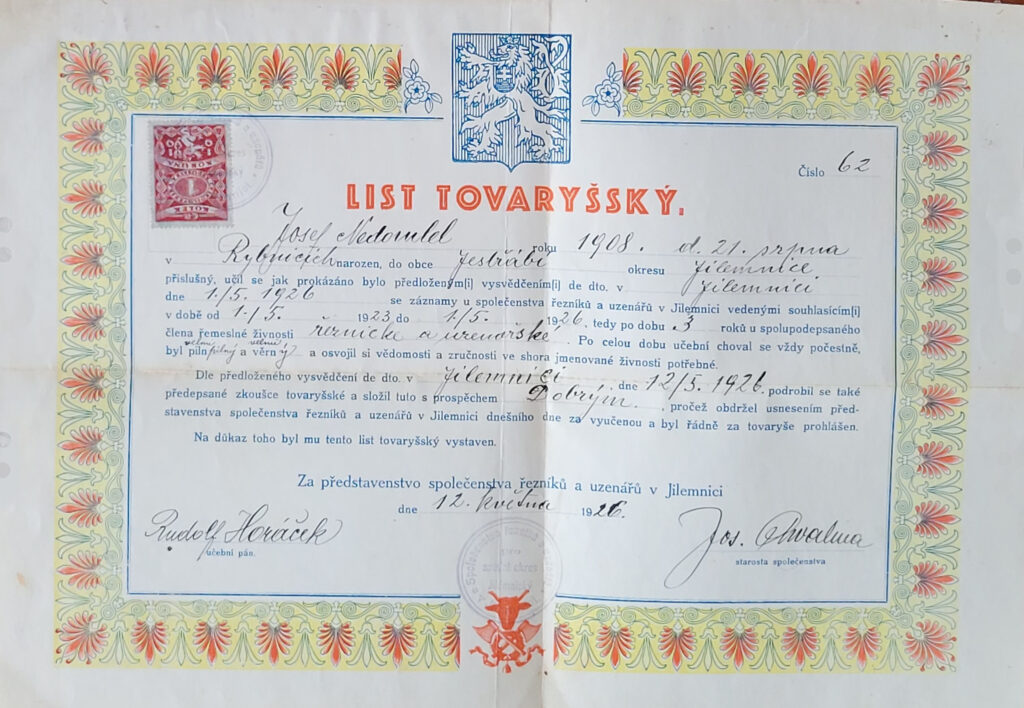 Číslo 62
KORUNA
1
KOLEK
LIST TOVARYŠSKÝ.
Josef Nedomlel roku 1908. d. 21. srpna
v Rybnicích narozen, do obce Jestřabí okresu Jilemnice.
příslušný, učil se jak prokázáno bylo předložením[i] vysvědčením[i] de dto. v Jilemnici
dne 1./5. 1926 se záznamy u společenstva řezníků a uzenářů v Jilemnici vedenými souhlasícím[i]
v době od 1./5. 1923 do 1./5. 1926, tedy po dobu 3 roků u spolupodepsaného
člena řemeslné živnosti řeznické a uzenářské. Po celou dobu učební choval se vždy počestně,
velmi velmi
byl piln pilný a věrný a osvojil si vědomosti a zručnosti ve shora jmenované živnosti potřebné.
Dle předloženého vysvědčení de dto. v Jilemnici dne 12/5. 1926. podrobil se také
předepsané zkoušce tovaryšské a složil tuto s prospěchem Dobrým., pročež obdržel usnesením před-
stavenstva společenstva řezníků a uzenářů v Jilemnici dnešního dne za vyučenou a byl řádně za tovaryše prohlášen.
Na důkaz toho byl mu tento list tovaryšský vystaven.
Za představenstvo společenstva řezníků a uzenářů v Jilemnici
dne 12. května 1926.
Rudolf Horáček
učební pán.
Jos. Chvalina
starosta společenstva